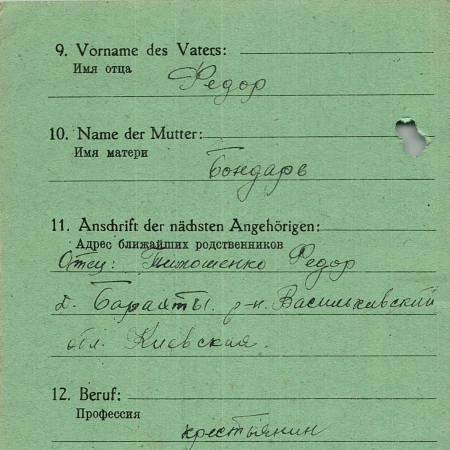 9. Vorname des Vaters:
Имя отца
Федор
10. Name der Mutter:
Имя матери
Бондарь
11. Anschrift der nächsten Angehörigen:
Адрес ближайших родственников
Отец: Тимошенко Федор
д. р-н. Васильківский
обл. Киевская.
12. Beruf:
Профессия
крестьянин